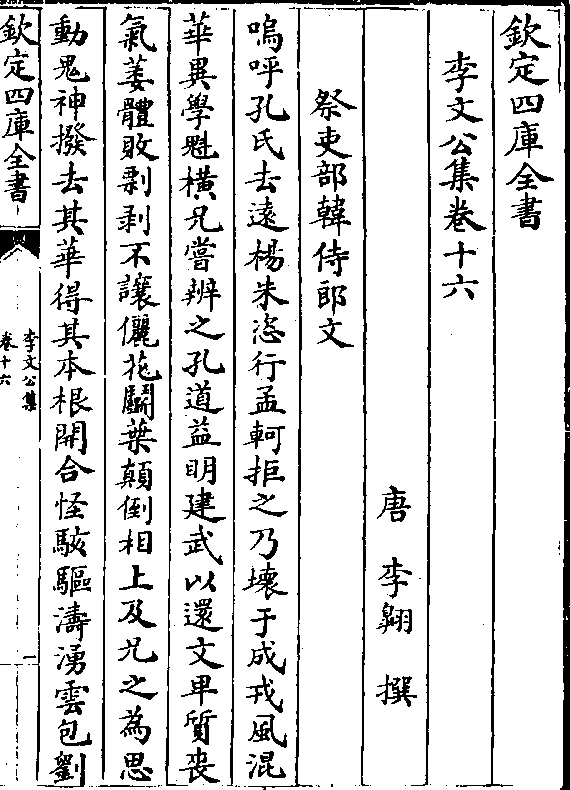 欽定四庫全書
李文公集卷十六
唐 李翱 撰
祭吏部韓侍郎文
嗚呼孔氏去遠楊朱恣行孟軻拒之乃壞于成戎風混
華異學魁橫兄嘗辨之孔道益明建武以還文卑質喪
氣萎體敗剽剥不讓儷花鬭葉顛倒相上及兄之為思
動鬼神撥去其華得其本根開合怪駭驅濤湧雲包劉
欽定四庫全書
李文公集
卷十六
一